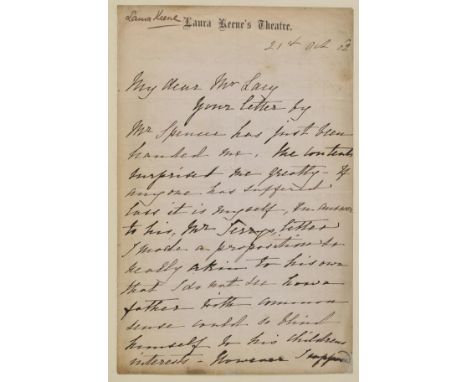 Laura Keene
Laura Keene's Theatre.
21st Oct
My dear Mr Lacy
Your letter by
Mr Spencer has just been
handed me. The contents
surprised me greatly - If
anyone has suffered
loss it is myself, In answer
to his, Mr Jerrys letter
I made a proposition so
really akin to his own
that I do not see how a
father with common
sense could so blind
himself to his childrens
interests - However I